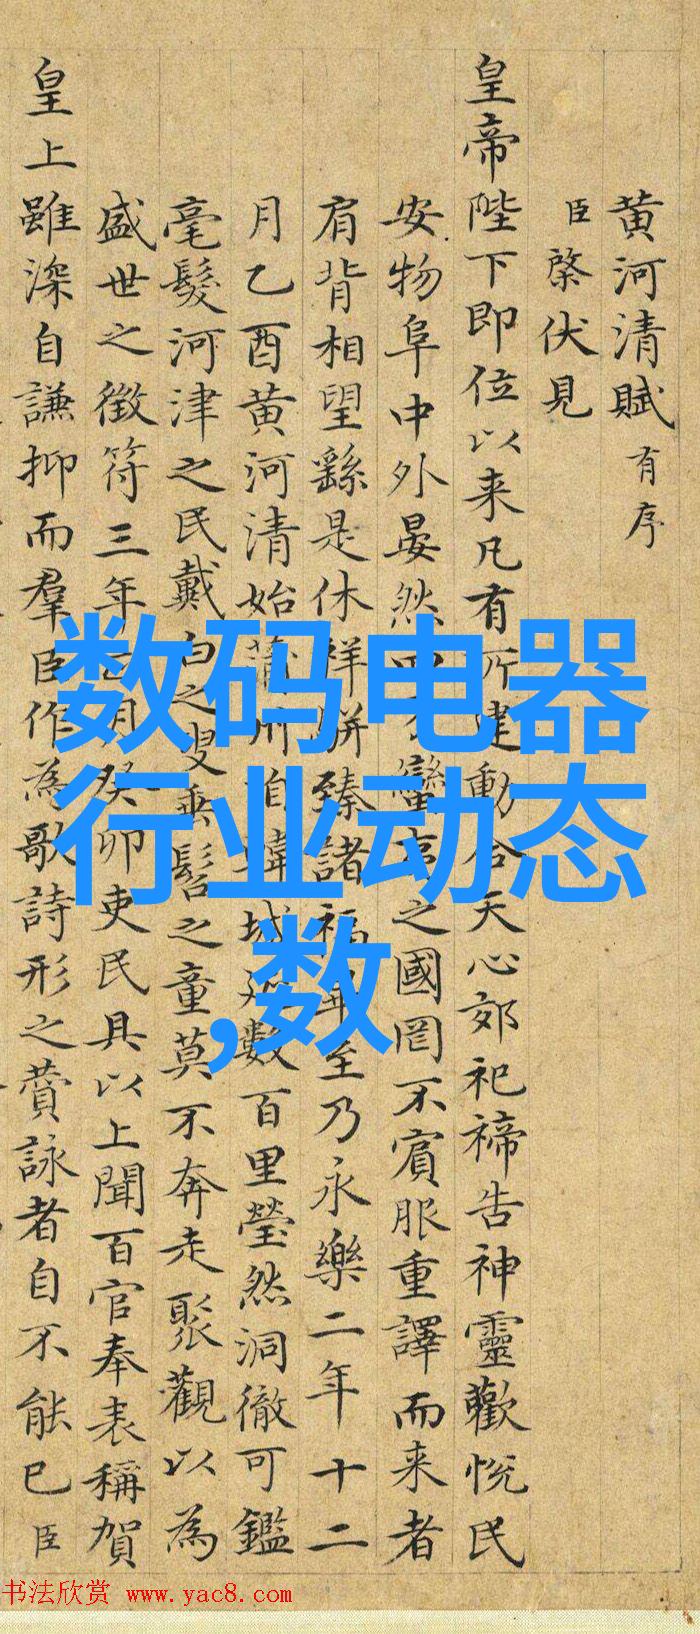 黄河清賦 有序
臣棨伏見
皇帝陛下即位以来凡有所建動合天心郊祀禘告神靈歡悦民
安物阜中外晏然四蠻之國罔不賓服重譯而来者
肩背相望繇是休祥駢臻諸福畢至乃永樂二年十二
月乙酉黄河清始蒲州城數百里瑩然洞徹可鑑
毫髮河津之民戴白之叟垂髫之童莫不奔走聚觀以為
盛世之徵符三年正月癸卯吏民具以上聞百官奉表稱賀
皇上雖深自謙抑而羣臣作為歌詩形之賛詠者自不能已臣
数码电器
行业动态
,数
书法欣赏 www.yac8.com